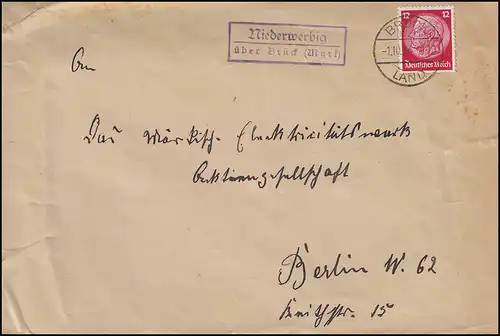 Niederwerbig
über Brück (Mark)
12 12
Deutsches Reich
LAND
An
Das Märkisch. Elecktricitätswerk
Acktiengesellschaft
Berlin W. 62
Keithstr. 15